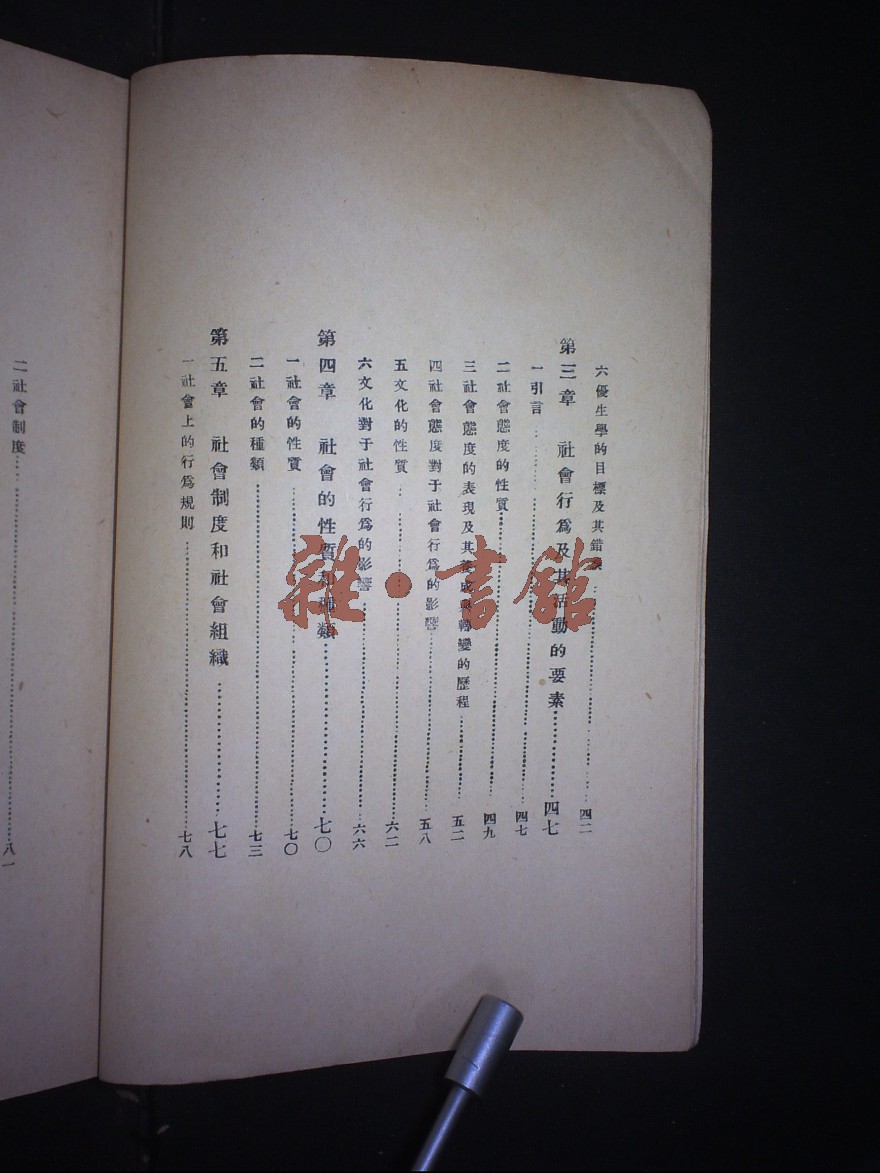 六 優生學的目標及其錯……四二
第三章 社會行爲及其活動的要素……四七
一 引言……四七
二 社會態度的性質……四九
三 社會態度的表現及其養成與轉變的歷程……五二
四 社會態度對于社會行爲的影響……五八
五 文化的性質……六二
六 文化對于社會行爲的影響……六六
第四章 社會的性質和種類……七〇
一 社會的性質……七〇
二 社會的種類……七三
第五章 社會制度和社會組織……七七
一 社會上的行爲規則……七八
二 社會制度……八一
雜·書館